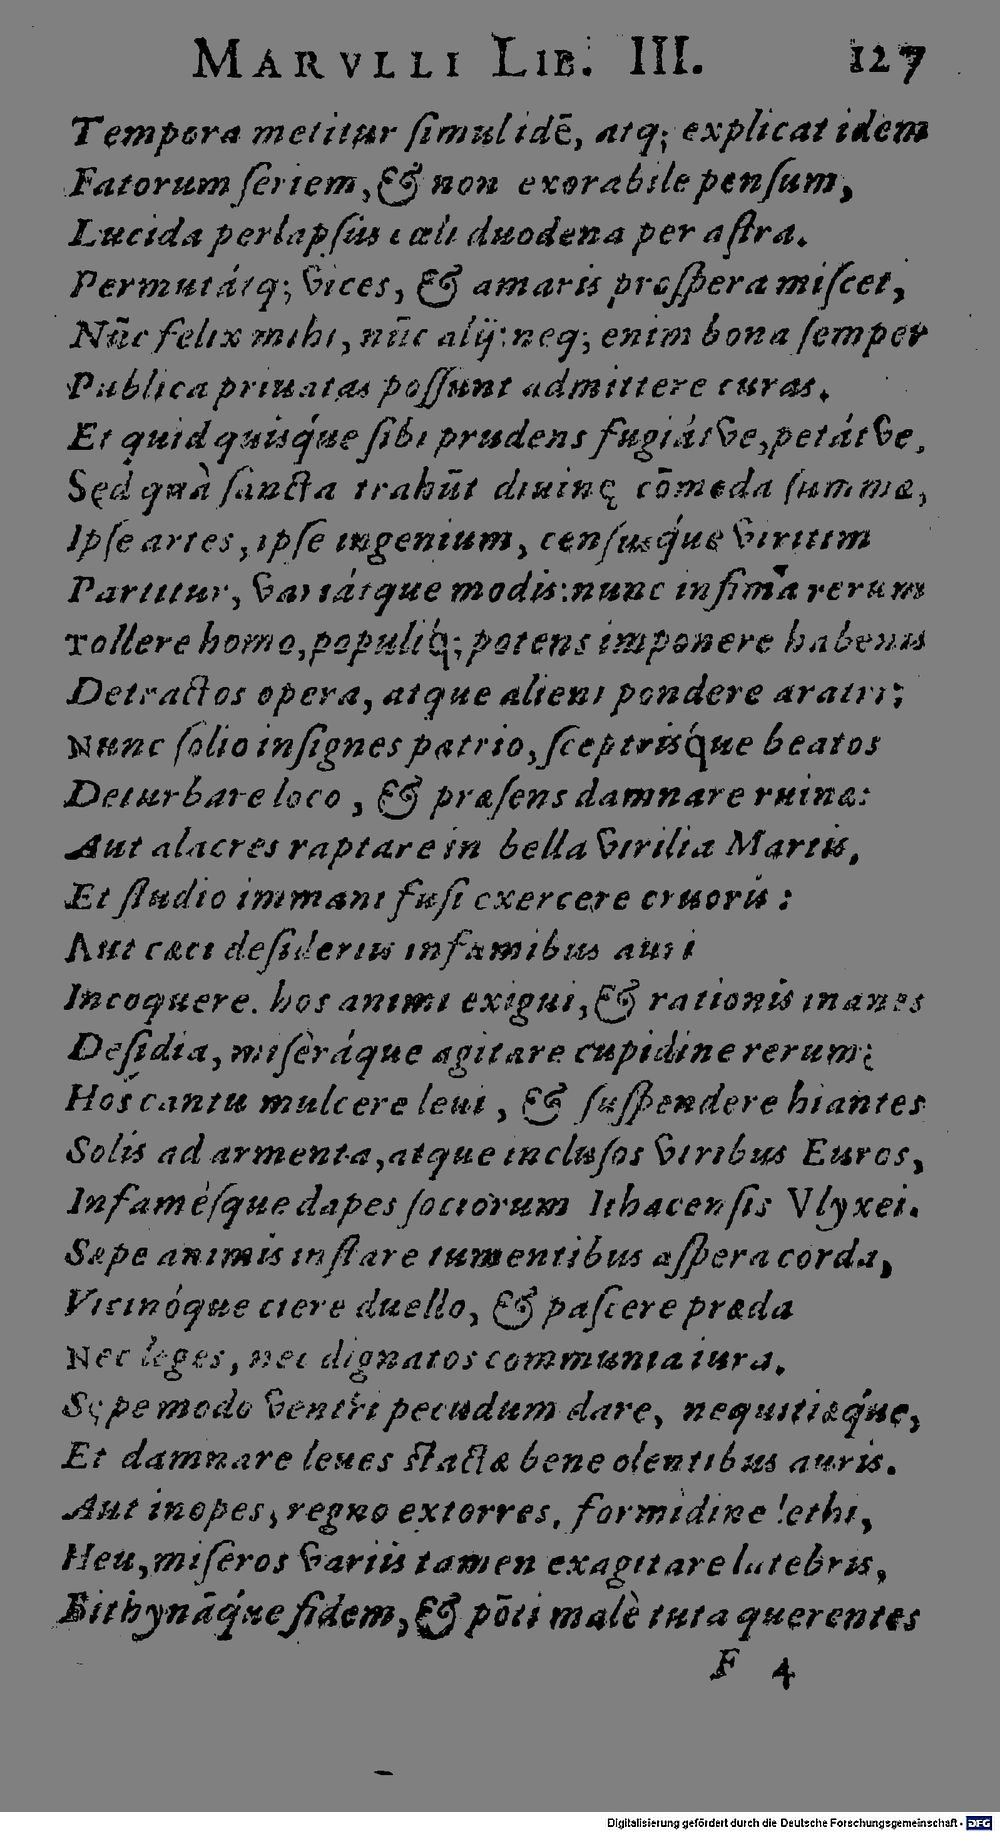 MARVLLI LIB. III. 127
Tempora metitur ſimul idē, atq; explicat idem
Fatorum ſeriem, & non exorabile penſum,
Lucida perlapſus cæli duodena per aſtra.
Permutátq; vices, & amaris proſpera miſcet,
Nūc felix mihi, nūc alij: neq; enim bona ſemper
Publica priuatas poſſunt admittere curas.
Et quid quisq́ue ſibi prudens fugiátve, petátve,
Sęd quà ſancta trahūt diuinę cōmoda ſummæ,
Ipſe artes, ipſe ingenium, cenſusq́ue viritim
Partitur, variátque modis: nunc infima rerum
Tollere homo, populiq́; potens imponere habenis
Detractos opera, atque alieni pondere aratri;
Nunc ſolio inſignes patrio, ſceptrisq́ue beatos
Deturbare loco, & præſens damnare ruinæ:
Aut alacres raptare in bella virilia Martis,
Et ſtudio immani fuſi exercere cruoris:
Aut cæci deſideriis infamibus auri
Incoquere. hos animi exigui, & rationis inanes
Deſidia, miſeráque agitare cupidine rerum;
Hos cantu mulcere leui, & ſuſpendere hiantes
Solis ad armenta, atque incluſos viribus Euros,
Infaméſque dapes ſociorum Ithacenſis Vlyxei.
Sæpe animis inſtare tumentibus aſpera corda,
Vicinóque ciere duello, & paſcere præda
Nec leges, nec dignatos communia iura.
Sępe modo ventri pecudum dare, nequitiæq́ue,
Et damnare leues ſtactæ bene olentibus auris.
Aut inopes, regno extorres, formidine lethi,
Heu, miſeros variis tamen exagitare latebris,
Bithynāq́ue fidem, & pōti malè tuta querentes
F 4
Digitalisierung gefördert durch die Deutsche Forschungsgemeinschaft - DFG